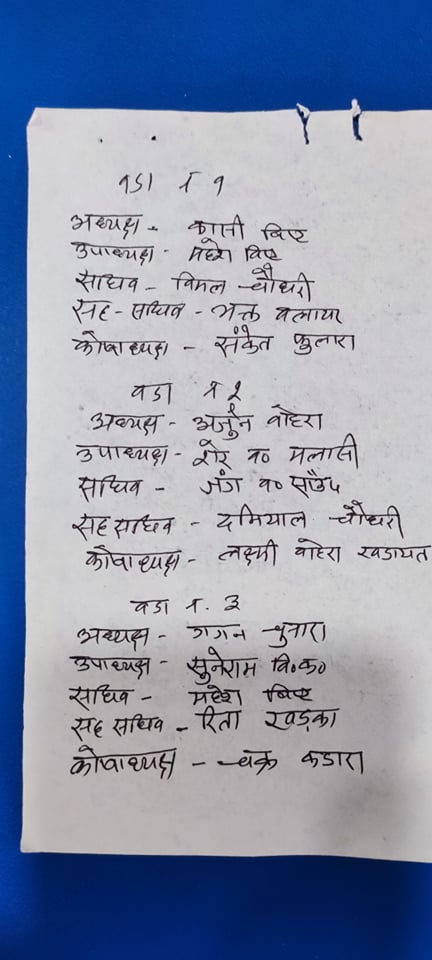 वडा नं १
अध्यक्ष - काशी विष्ट
उपाध्यक्ष - महेश विष्ट
सचिव - विमल चौधरी
सह-सचिव - भक्त वलायर
कोषाध्यक्ष - संकेत फुलारा
वडा नं २
अध्यक्ष - अर्जुन वोहरा
उपाध्यक्ष - शेर व० मलासी
सचिव - जंग व०
सह सचिव - दमियाल चौधरी
कोषाध्यक्ष - लक्ष्मी वोहरा खडायत
वडा नं. ३
अध्यक्ष - गगन चुनारा
उपाध्यक्ष - सुनेराम वि.क०
सचिव - महेश विष्ट
सह सचिव - रिता खड्का
कोषाध्यक्ष - चक्र कडारा